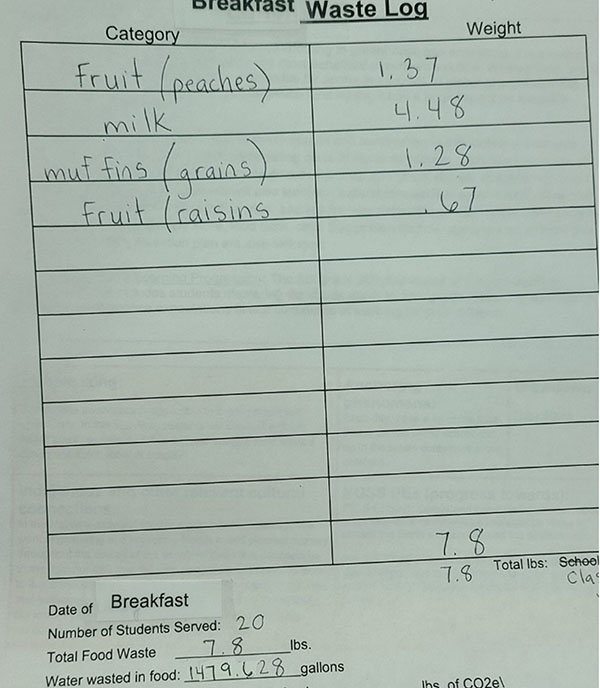 Breakfast Waste Log
Category Weight
Fruit (peaches) 1.37
milk 4.48
muffins (grains) 1.28
Fruit (raisins .67
7.8
7.8 Total lbs: School
Clas
Date of Breakfast
Number of Students Served: 20
Total Food Waste 7.8 lbs.
Water wasted in food: 1479.628 gallons
lbs. of CO2e\